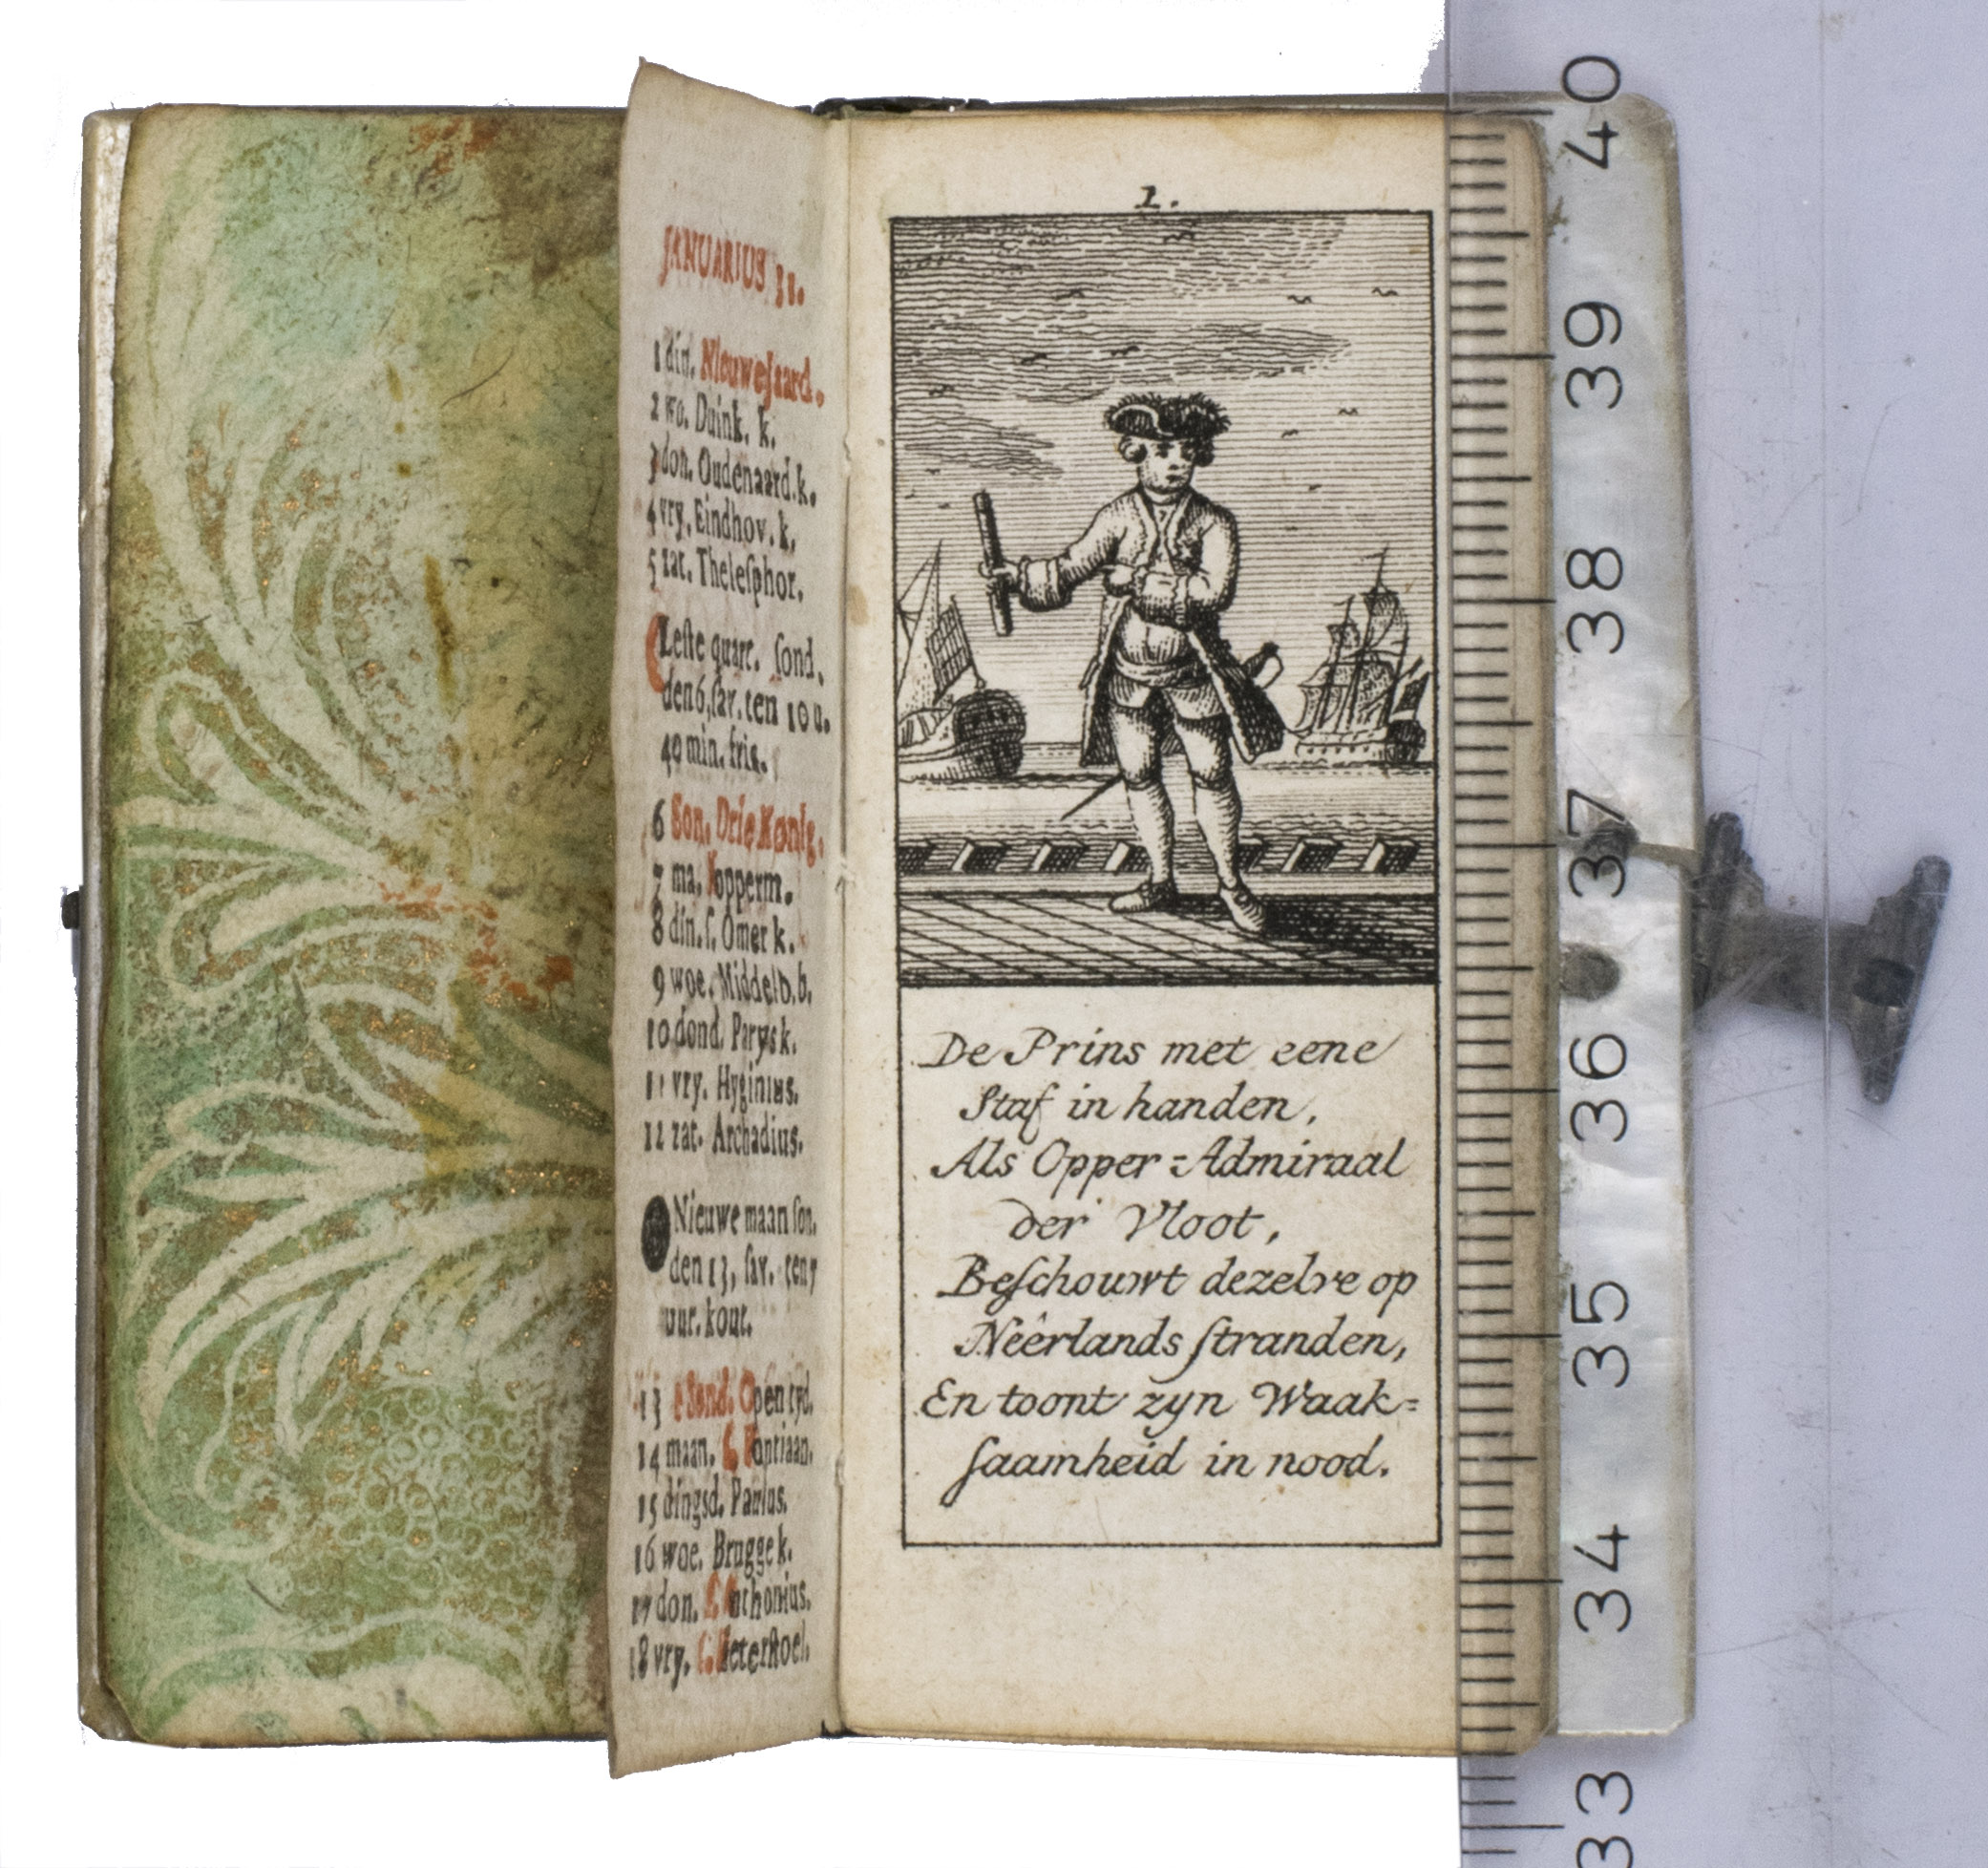 JANUARIUS 31.
1 din. Nieuwejaard.
2 wo. Duink. k.
3 don. Oudenaard. k.
4 vry. Eindhov. k.
5 zat. Theleſphor.
Leſte quart. ſond.
den 6, ſav. ten 10 u.
40 min. fris.
6 Son. Drie Konig.
7 ma. Kopperm.
8 din. ſ. Omer k.
9 woe. Middelb. b.
10 dond. Parys k.
11 vry. Hyginius.
12 zat. Archadius.
Nieuwe maan ſon.
den 13, ſav. ten 7
uur. kout.
13 1 Sond. Open tyd.
14 maan. ſ. Pontiaan.
15 dingsd. Paulus.
16 woe. Brugge k.
17 don. ſ. Anthonius.
18 vry. ſ. Pieterſtoel.
1.
De Prins met eene
Staf in handen,
Als Opper-Admiraal
der Vloot,
Beſchouwt dezelve op
Neêrlands ſtranden,
En toont zyn Waak-
ſaamheid in nood.
40
39
38
37
36
35
34
33